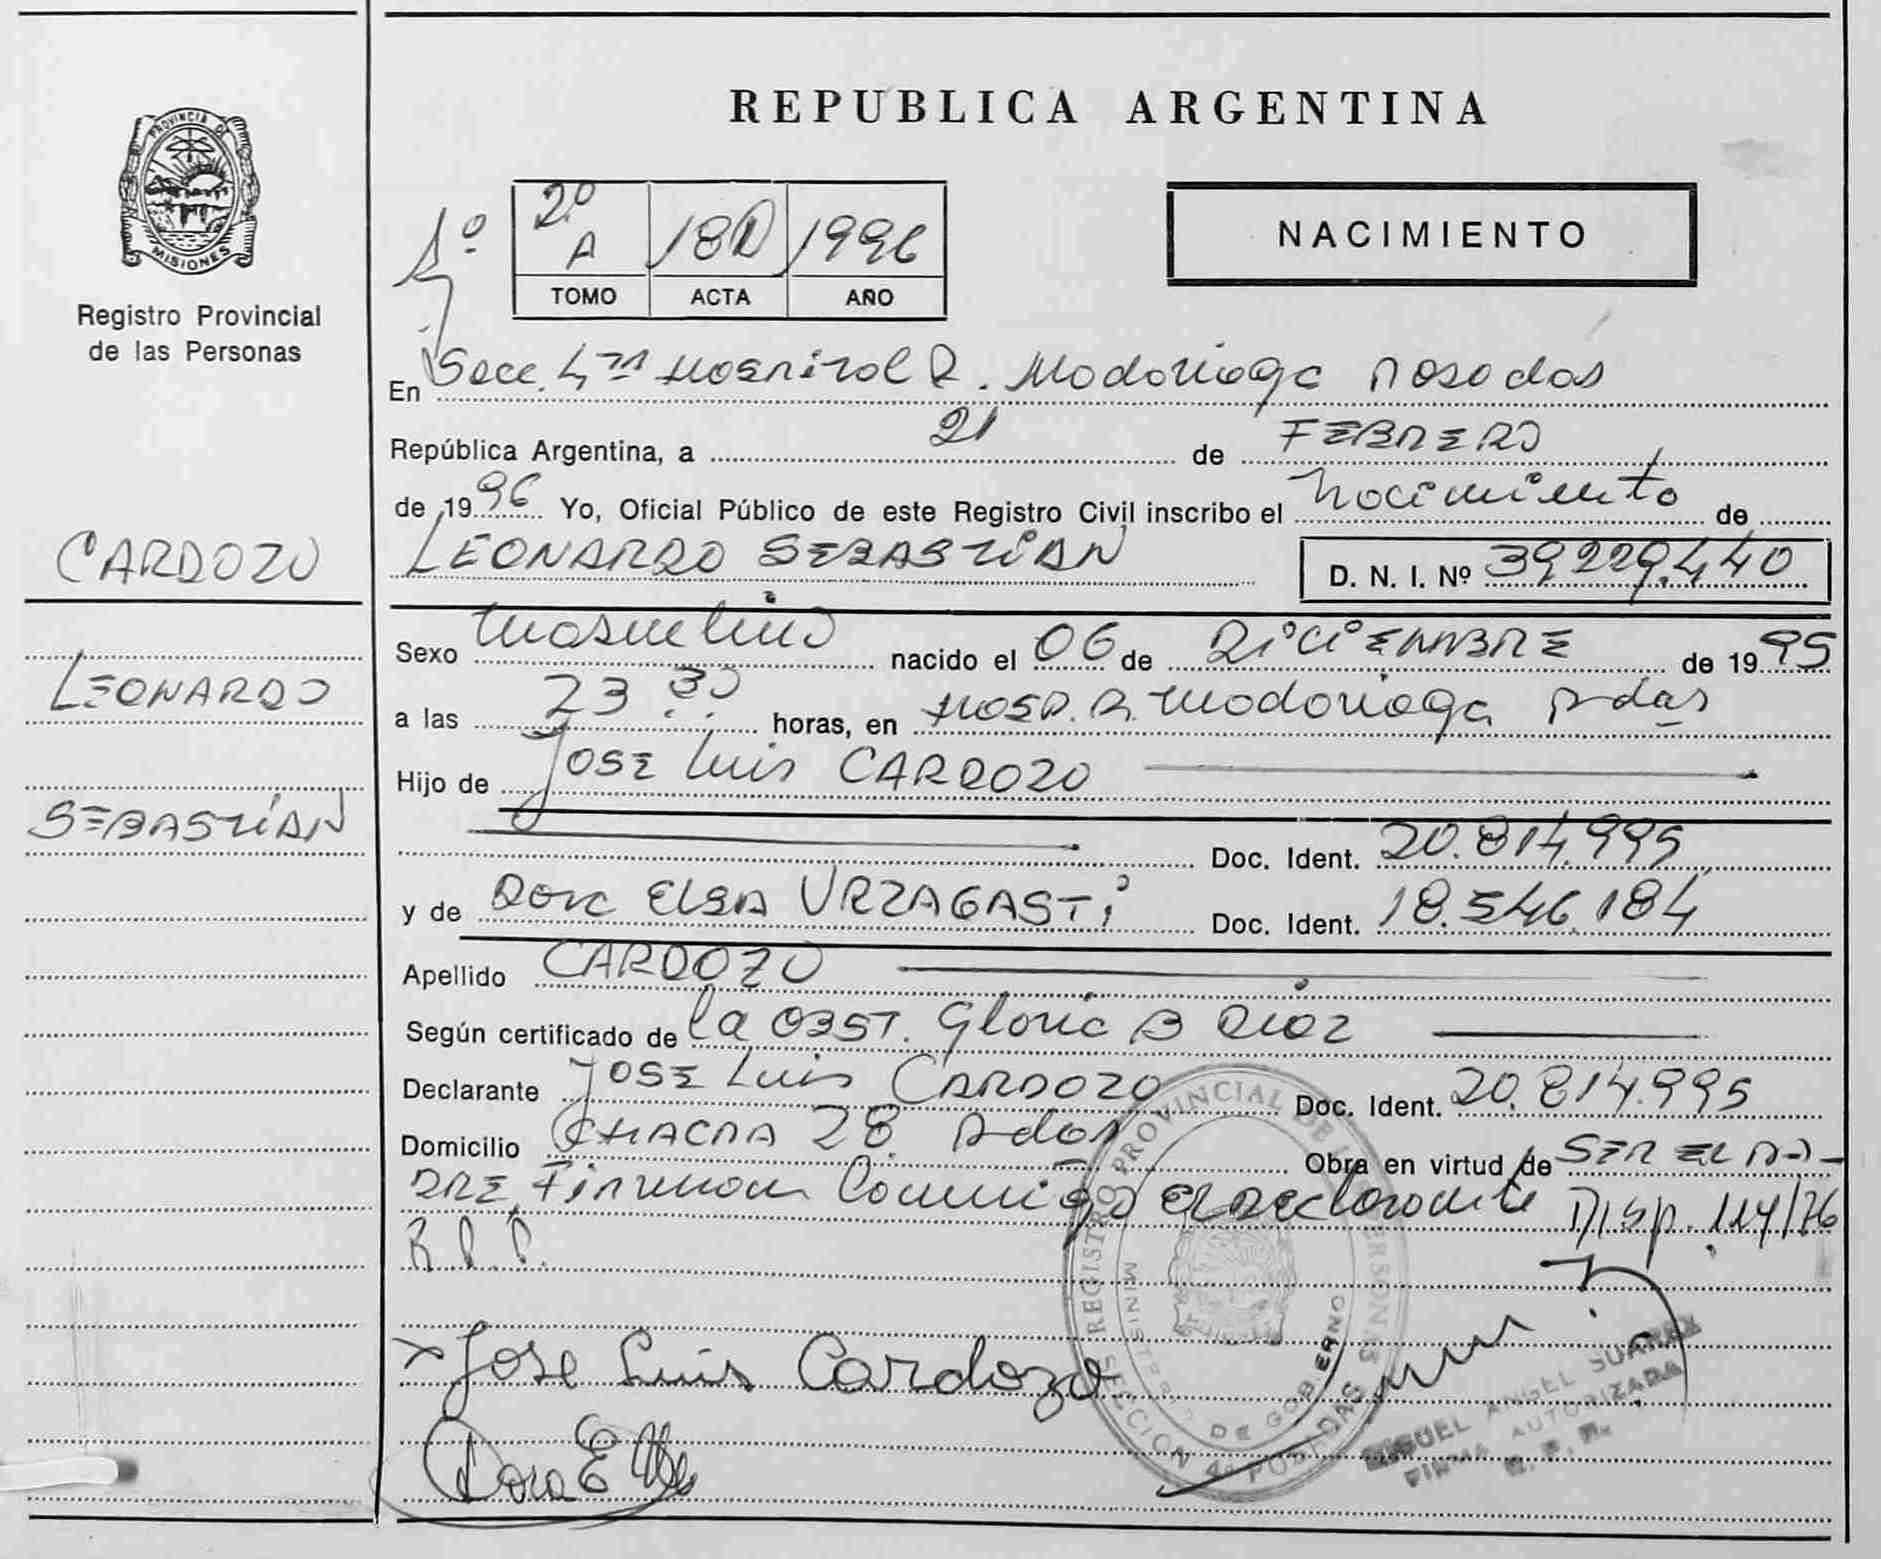 PROVINCIA DE
MISIONES
Registro Provincial
de las Personas
CARDOZO
LEONARDO
SEBASTIÁN
REPUBLICA ARGENTINA
1º
2º A 180 1996
TOMO ACTA AÑO
NACIMIENTO
En Secc. 4ta Hospital R. Madariaga Posadas
República Argentina, a 21 de FEBRERO
de 1996 Yo, Oficial Público de este Registro Civil inscribo el Nacimiento de
LEONARDO SEBASTIÁN D. N. I. Nº 39.229.440
Sexo Masculino nacido el 06 de DICIEMBRE de 1995
a las 23:30 horas, en HOSP. R. Madariaga Pdas
Hijo de JOSE Luis CARDOZO
Doc. Ident. 20.814.995
y de Dora ELBA URZAGASTi Doc. Ident. 18.546.184
Apellido CARDOZO
Según certificado de la OBST. Gloria B Diaz
Declarante JOSE Luis CARDOZO Doc. Ident. 20.814.995
Domicilio CHACRA 28 Pdas Obra en virtud de SER EL PA-
DRE Firman Conmigo El Declarante Disp. 114/76
R.P.P.
x Jose Luis Cardozo
Dora E
REGISTRO PROVINCIAL DE LAS PERSONAS
MINISTERIO DE GOBIERNO
SECCION 4a POSADAS
MIGUEL ANGEL SUAREZ
FIRMA AUTORIZADA
R. P. P.